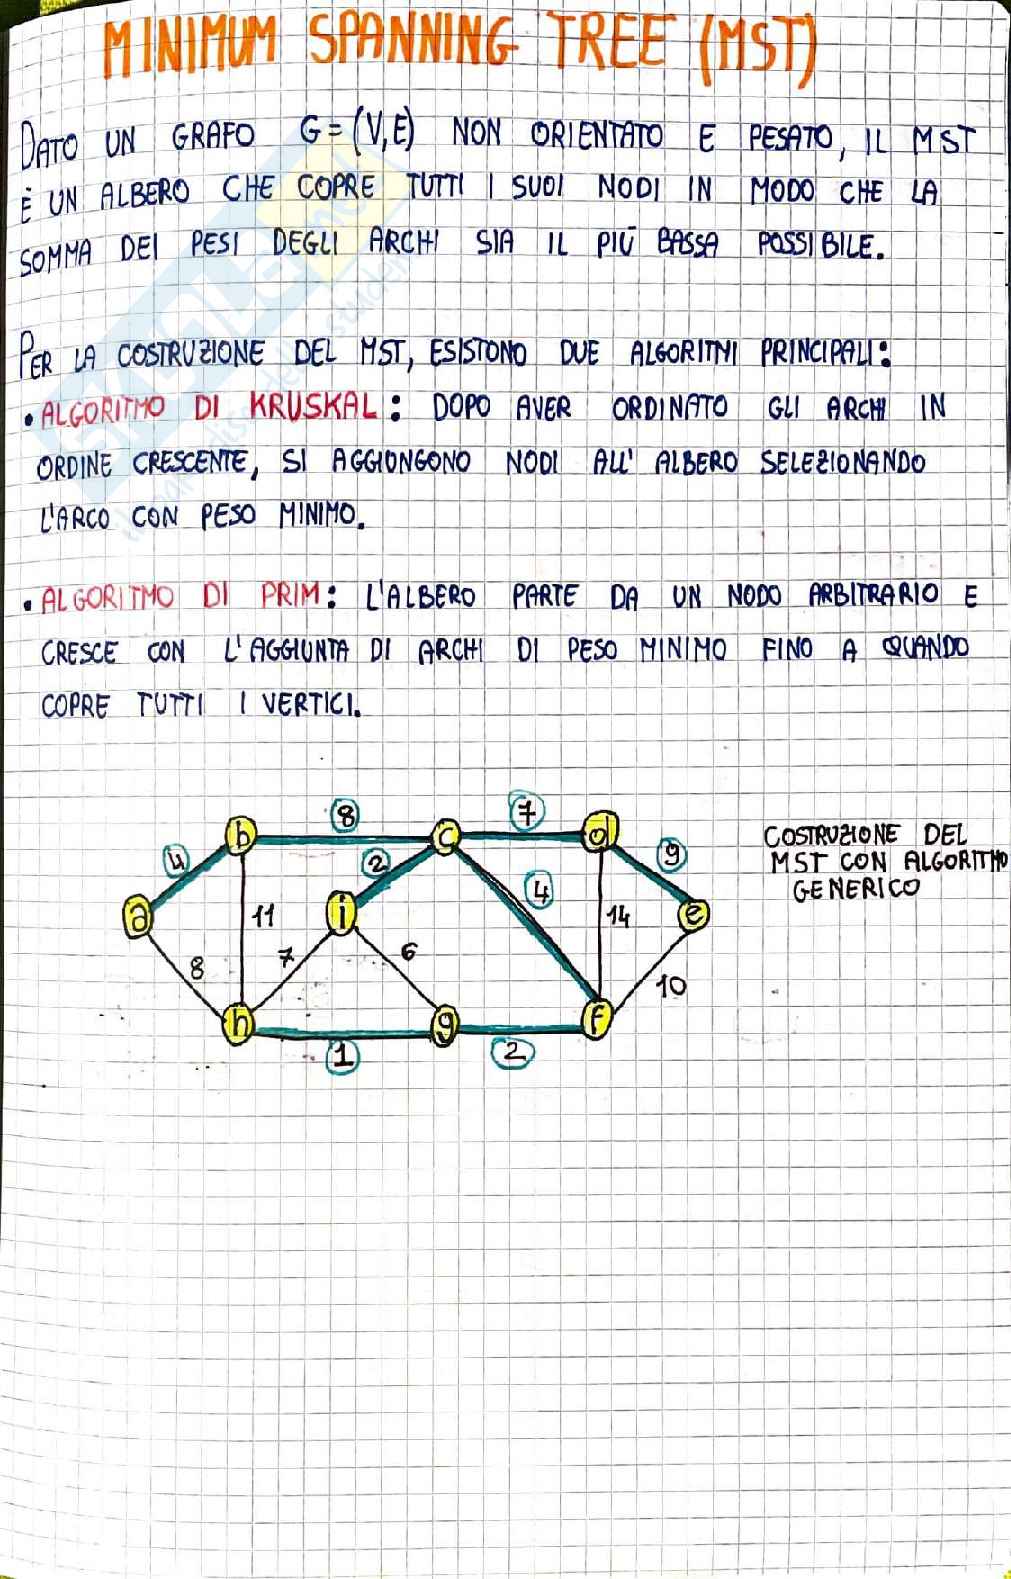 MINIMUM SPANNING TREE (MST)
DATO UN GRAFO G=(V,E) NON ORIENTATO E PESATO, IL MST
È UN ALBERO CHE COPRE TUTTI I SUOI NODI IN MODO CHE LA
SOMMA DEI PESI DEGLI ARCHI SIA IL PIÙ BASSA POSSIBILE.
PER LA COSTRUZIONE DEL MST, ESISTONO DUE ALGORITMI PRINCIPALI:
• ALGORITMO DI KRUSKAL: DOPO AVER ORDINATO GLI ARCHI IN
ORDINE CRESCENTE, SI AGGIONGONO NODI ALL' ALBERO SELEZIONANDO
L'ARCO CON PESO MINIMO.
• ALGORITMO DI PRIM: L'ALBERO PARTE DA UN NODO ARBITRARIO E
CRESCE CON L'AGGIUNTA DI ARCHI DI PESO MINIMO FINO A QUANDO
COPRE TUTTI I VERTICI.
8 7
b c d
4 2 9
4
a 11 i 14 e
8 7 6 10
h g f
1 2
COSTRUZIONE DEL
MST CON ALGORITMO
GENERICO